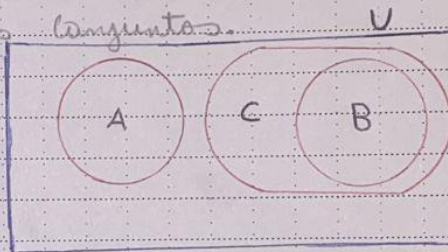 conjuntos.
U
A C B